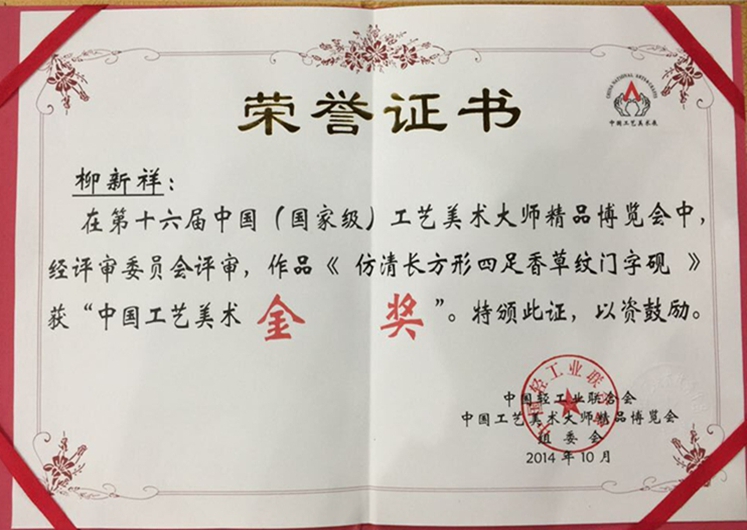 荣誉证书
CHINA NATIONAL ARTS & CRAFTS
中国工艺美术展
柳新祥：
在第十六届中国（国家级）工艺美术大师精品博览会中，
经评审委员会评审，作品《 仿清长方形四足香草纹门字砚 》
获“中国工艺美术 金 奖 ”。特颁此证，以资鼓励。
中国轻工业联合会
中国工艺美术大师精品博览会
组委会
2014 年 10 月